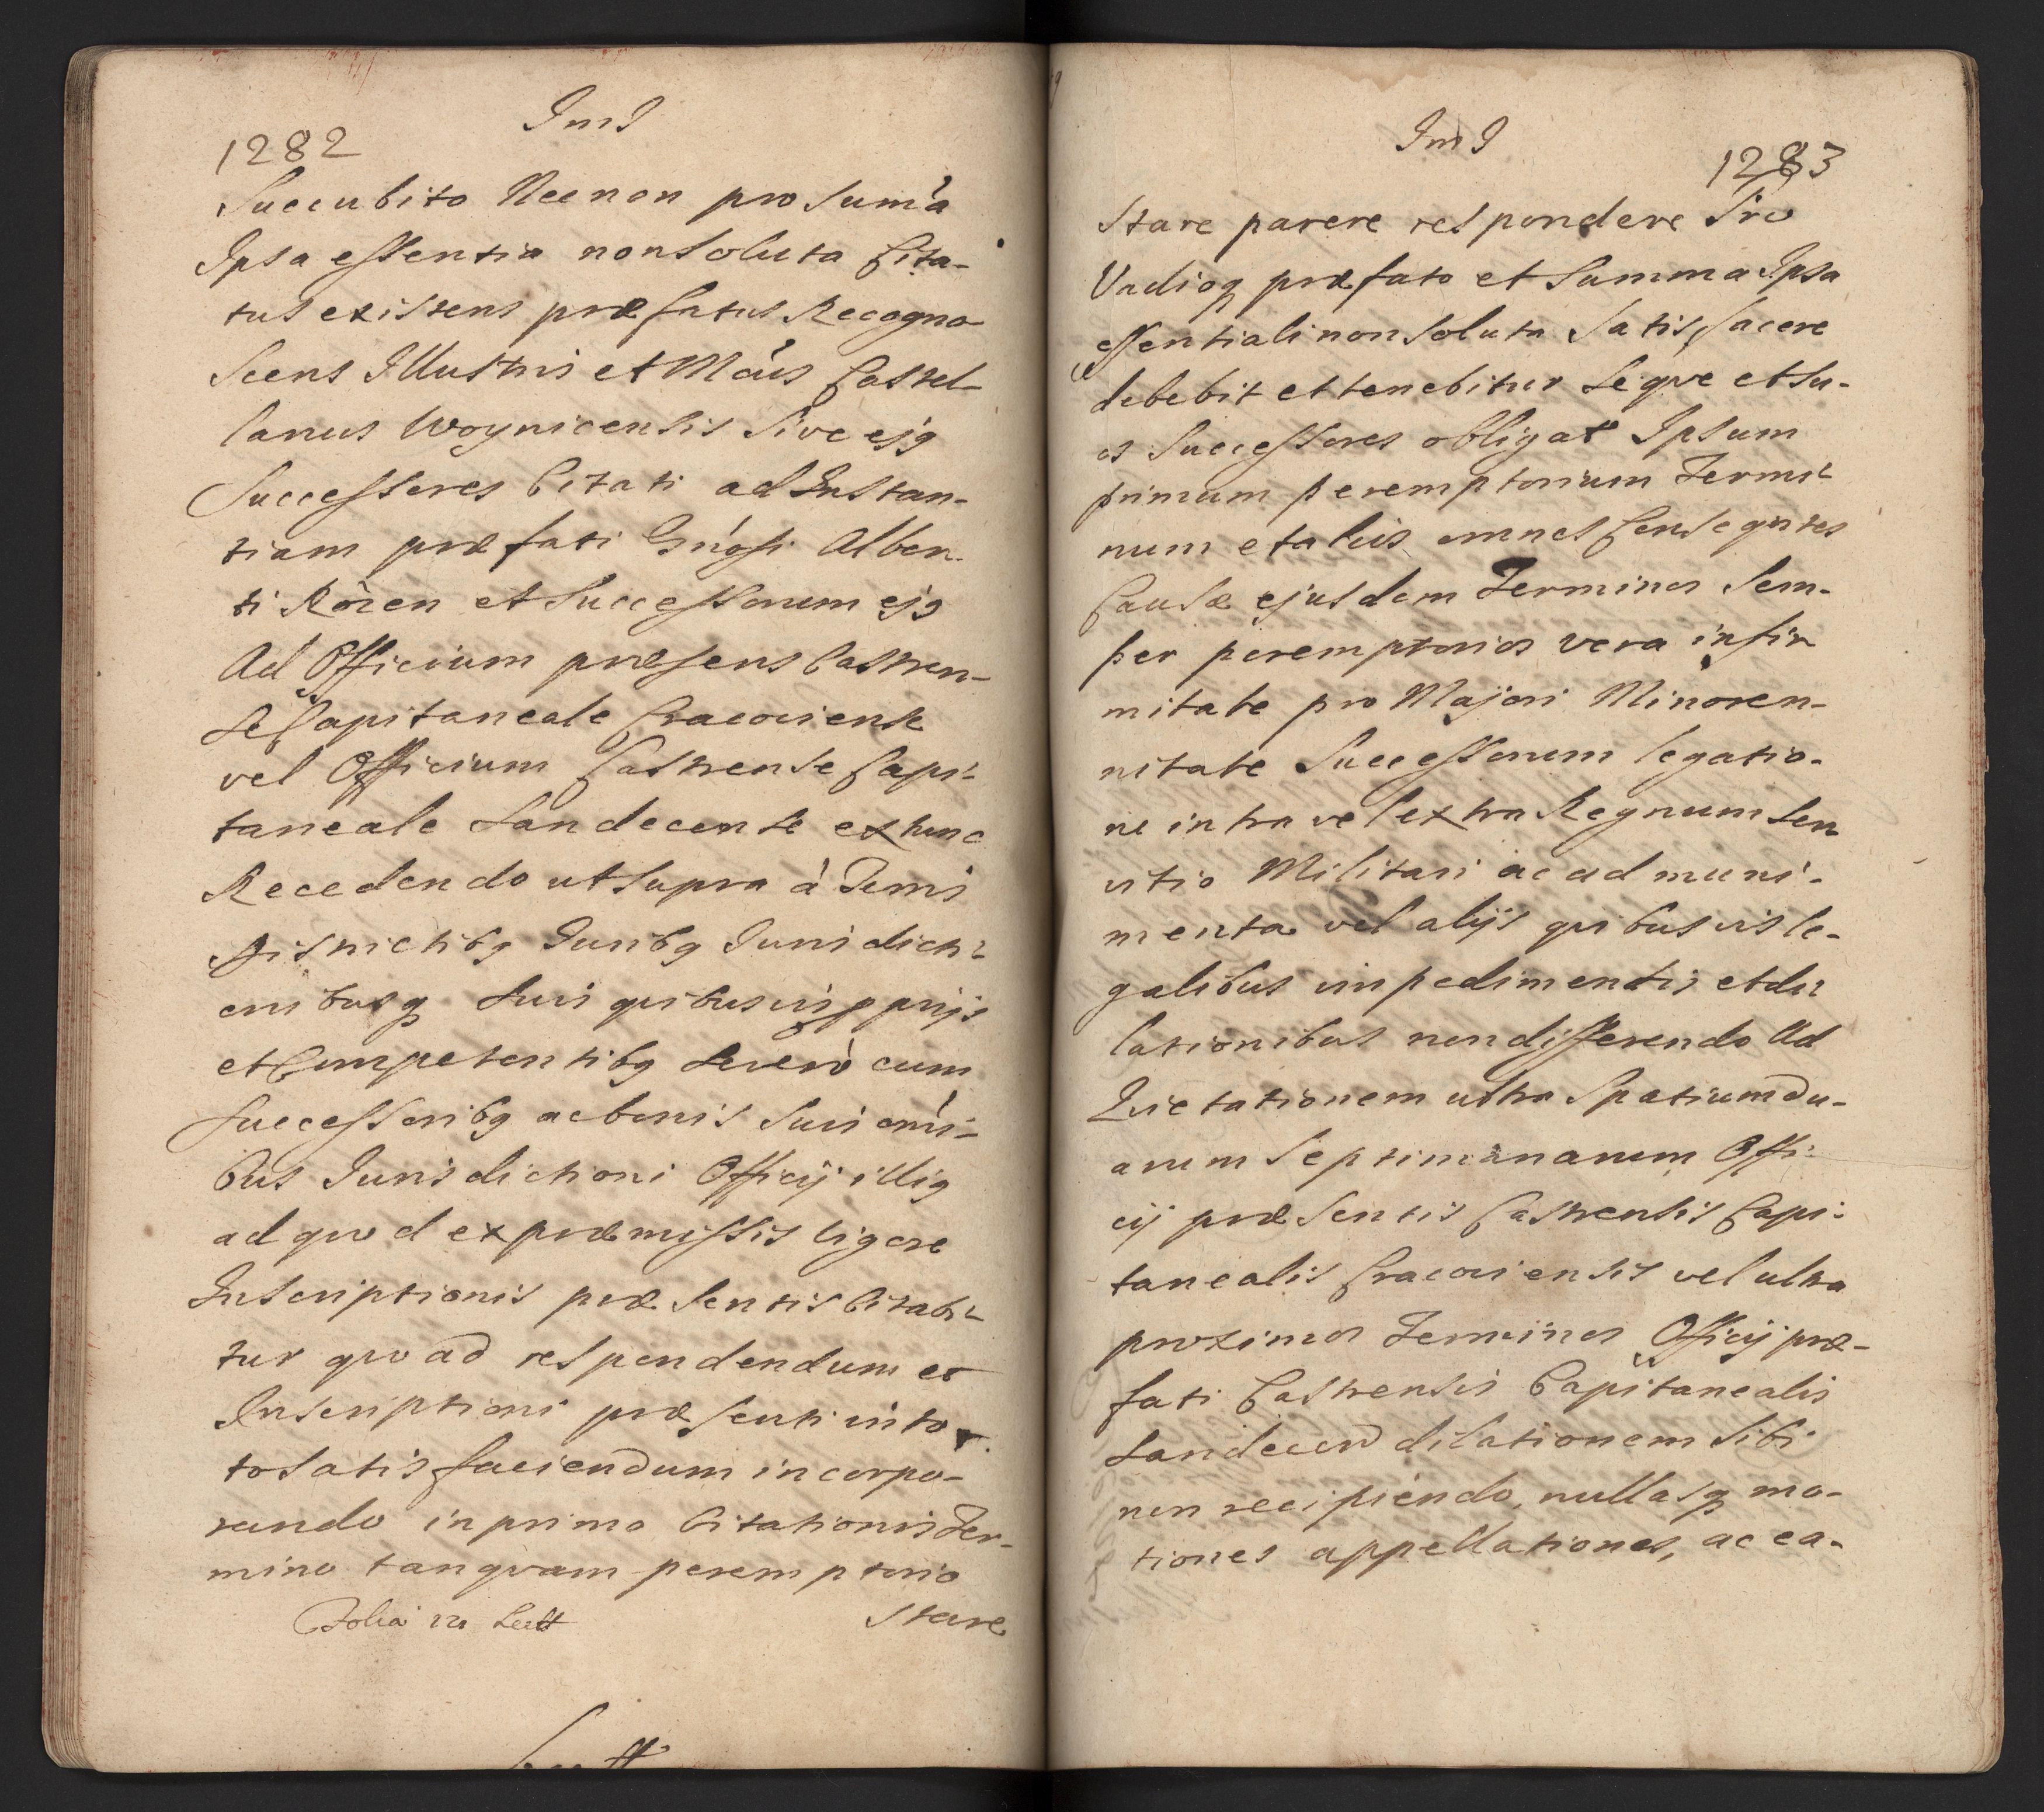 1282
Succubito Necnon pro Sumá
Ipsa essentia non Soluta Cita-
tus existens præfatus Recogno-
Scens Illustris et Mcus Castel-
lanus Woynicensis Sive ejq
Successores Citati ad Instan-
tiam præfati Gnosi Alber-
ti Rózen et Successorum ejq
Ad Officium præsens Castren-
Se Capitaneale Cracoviense
vel Officium Castrense Capi-
taneale Sandecense extunc
Recedendo ut Supra á Terris
Districtibq Juribq Jurisdicti-
onibusq Suis quibusvis pprijs
et Competentibq Severo cum
Successoribq ac bonis Suis omi-
bus Jurisdictioni Officij illiq
ad quod ex præmissis vigore
Inscriptionis præsentis Citabi-
tur quo ad respondendum et
Inscriptioni præsenti in to-
to Satisfaciendum incorpo-
rando in primo Citationis Ter-
mino tanquam peremptorio
Stare
1283
Stare parere respondere Pro
Vadioq præfato et Summa Ipsa
essentiali non Soluta Satisfacere
debebit et tenebitur Seqve et Su-
os Successores obligat Ipsum
primum peremptorium Termi-
num et alios omnes Conseqntes
Causæ ejusdem Terminos Sem-
per peremptorios vera infir-
mitate pro Majori Minoren-
nitate Successorum legatio-
ne intra vel extra Regnum Ser-
vitio Militari ac ad muni-
menta vel alijs quibusvis le-
galibus impedimentis et di-
lationibus non differendo Ad
Quietationem ultra Spatium Du-
arum Septimanarum Offi-
cij præsentis Castrensis Capi-
tanealis Cracoviensis vel ultra
proximos Terminos Officij præ-
fati Castrensis Capitanealis
Sandecen dilationem Sibi
non recipiendo, nullasq mo-
tiones appellationes, ac ea-